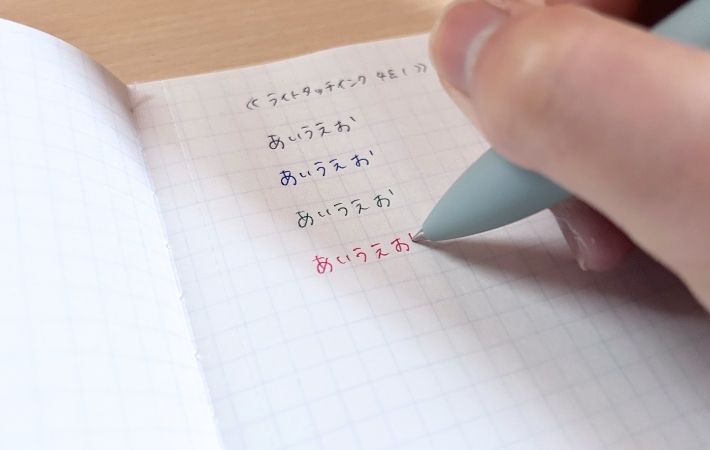 《ライトタッチインク 4色!》
あいうえお
あいうえお
あいうえお
あいうえお